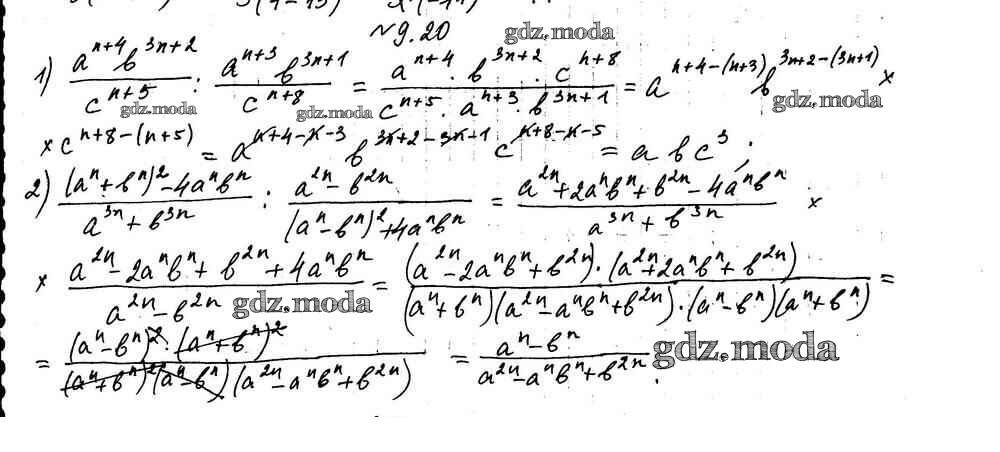 №9.20 gdz.moda
1) a^{n+4}b^{3n+2}/c^{n+5} : a^{n+3}b^{3n+1}/c^{n+8} = a^{n+4}·b^{3n+2}·c^{n+8}/c^{n+5}·a^{n+3}·b^{3n+1} = a^{n+4-(n+3)} b^{3n+2-(3n+1)} ×
gdz.moda gdz.moda gdz.moda
× c^{n+8-(n+5)} = a^{n+4-n-3} b^{3n+2-3n+1} c^{n+8-n-5} = abc^3;
2) (a^n+b^n)^2-4a^nb^n/a^{3n}+b^{3n} : a^{2n}-b^{2n}/(a^n-b^n)^2+4a^nb^n = a^{2n}+2a^nb^n+b^{2n}-4a^nb^n/a^{3n}+b^{3n} ×
× a^{2n}-2a^nb^n+b^{2n}+4a^nb^n/a^{2n}-b^{2n} = (a^{2n}-2a^nb^n+b^{2n})·(a^{2n}+2a^nb^n+b^{2n})/(a^n+b^n)(a^{2n}-a^nb^n+b^{2n})·(a^n-b^n)(a^n+b^n) =
gdz.moda
= (a^n-b^n)^2·(a^n+b^n)^2/(a^n+b^n)^2(a^n-b^n)(a^{2n}-a^nb^n+b^{2n}) = a^n-b^n/a^{2n}-a^nb^n+b^{2n}. gdz.moda